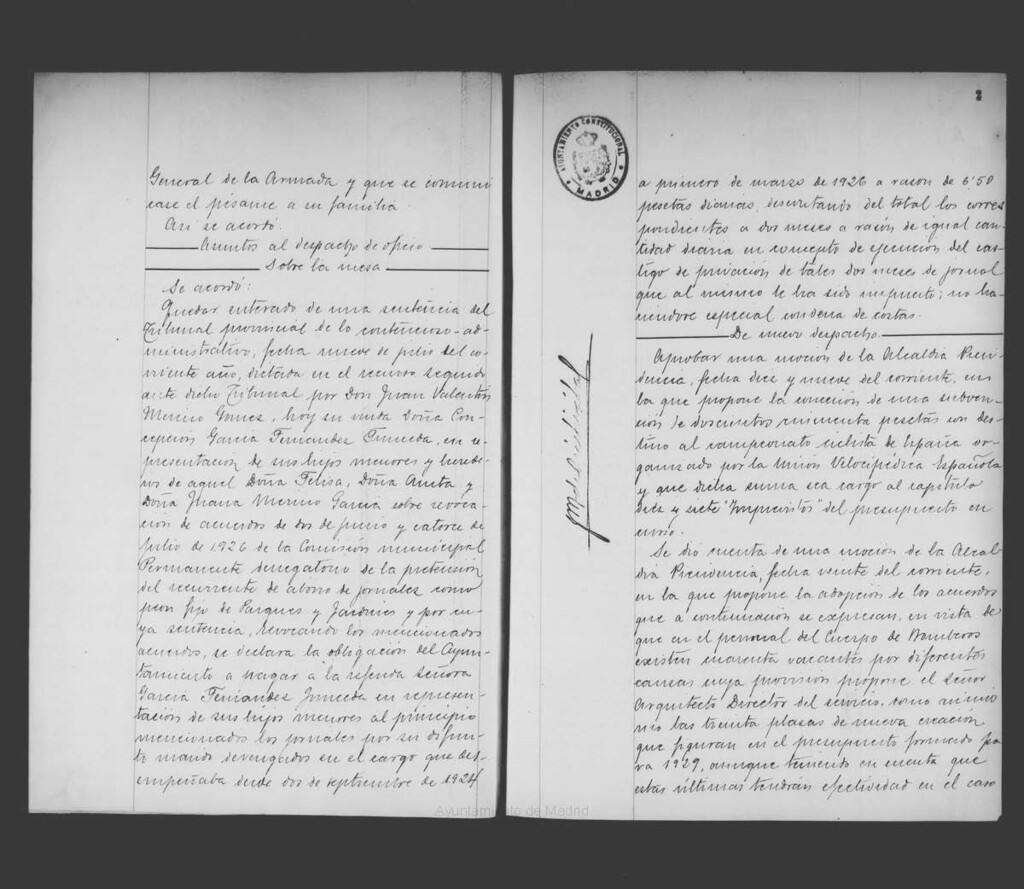 General de la Armada y que se comuni
case el pésame a su familia.
Así se acordó.
Asuntos al despacho de oficio
Sobre la mesa
Se acordó:
Quedar enterado de una sentencia del
Tribunal provincial de lo contencioso-ad-
ministrativo, fecha nueve de julio del co-
rriente año, dictada en el recurso seguido
ante dicho Tribunal por Don Juan Valentín
Merino Gomez, hoy su viuda Doña Con-
cepción García Fernandez, en re-
presentación de sus hijos menores y herede-
ros de aquel Doña Felisa, Doña Aneta y
Doña Juana Merino García sobre revoca-
cion de acuerdos de dos de junio y catorce de
julio de 1.926 de la Comisión municipal
Permanente denegatorio de la pretensión
del recurrente de abono de jornales como
peon fijo de Parques y Jardines y por cu-
ya sentencia, revocando los mencionados
acuerdos, se declara la obligación del Ayun-
tamiento a pagar a la referida señora
García Fernandez en represen-
tación de sus hijos menores al principio
mencionados los jornales por su difun-
to marido devengados en el cargo que des-
empeñaba desde dos de septiembre de 1924
AYUNTAMIENTO CONSTITUCIONAL
MADRID
2
a primero de marzo de 1926 a razon de 6'50
pesetas diarias, descontando del total los corres
pondientes a dos meses a razón de igual can-
tidad diaria en concepto de ejecucion del cas-
tigo de privación de tales dos meses de jornal
que al mismo le ha sido impuesto; no ha-
ciendose especial condena de costas.
De nuevo despacho
Aprobar una moción de la Alcaldia Presi-
dencia, fecha diez y nueve del corriente, en
la que propone la concesión de una subven-
ción de doscientas cincuenta pesetas con des-
tino al campeonato ciclista de España or-
ganizado por la Unión Velocipédica Española
y que dicha suma sea cargo al capítulo
diez y siete "Imprevistos" del presupuesto en
curso.
Se dio cuenta de una moción de la Alcal-
dia Presidencia, fecha veinte del corriente,
en la que propone la adopción de los acuerdos
que a continuación se expresan, en vista de
que en el personal del Cuerpo de Bomberos
existen cuarenta vacantes por diferentes
causas cuya provisión propone el señor
Arquitecto Director del servicio, como asimis
mo las treinta plazas de nueva creación
que figuran en el presupuesto formado pa
ra 1929, aunque teniendo en cuenta que
estas últimas tendrán efectividad en el caso
Ayuntamiento de Madrid